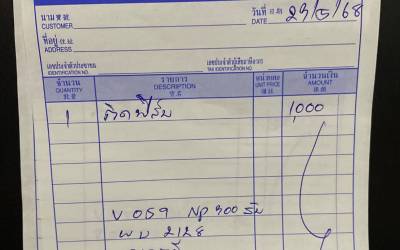 นาม 寶號
CUSTOMER
วันที่ 日期
DATE 23/5/68
ที่อยู่ 住址
ADDRESS
เลขประจำตัวประชาชน
IDENTIFICATION NO.
เลขประจำตัวผู้เสียภาษีอากร
TAX IDENTIFICATION NO.
จำนวน รายการ หน่วยละ จำนวนเงิน
QUANTITY DESCRIPTION UNIT PRICE AMOUNT
數量 貨名 價目 銀碼
1 ติดฟิล์ม 1,000
V 059 NP 300 รับ
ผบ 2128